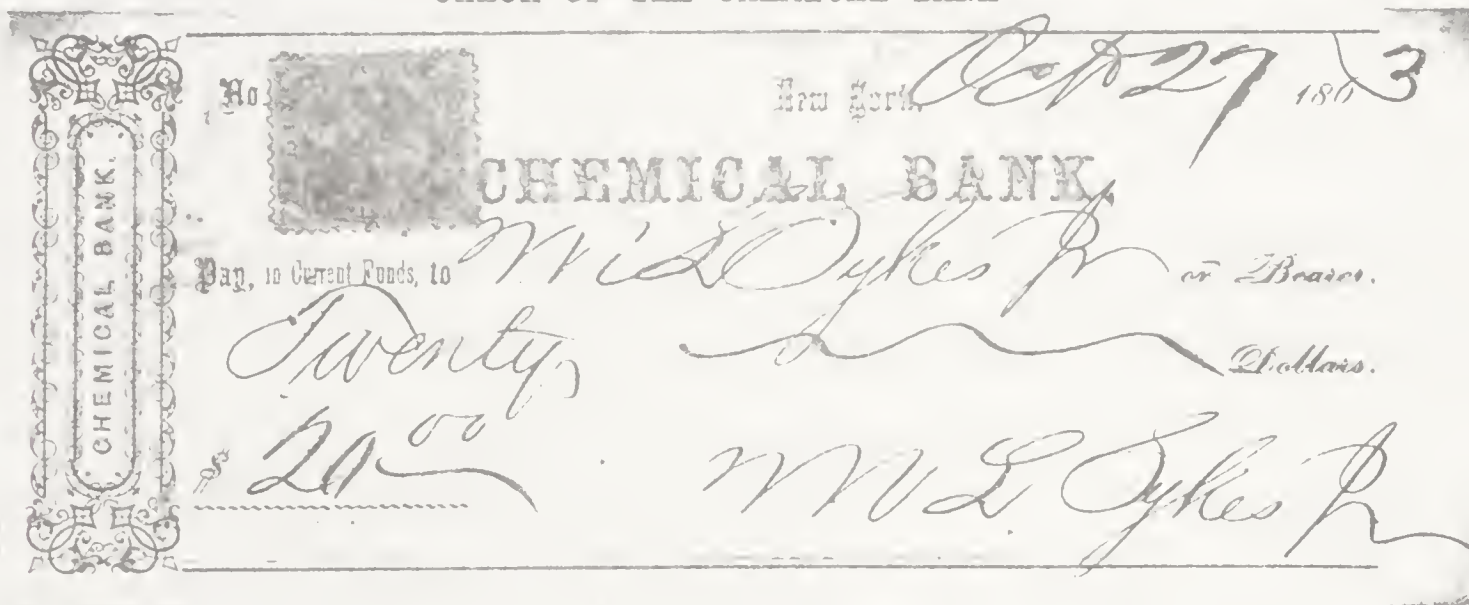 CHECK OF THE CHEMICAL BANK
CHEMICAL BANK.
No.
New York, Oct 27 1863
CHEMICAL BANK,
Pay, in Current Funds, to M L Sykes Jr or Bearer.
Twenty Dollars.
$ 20 00
M L Sykes Jr